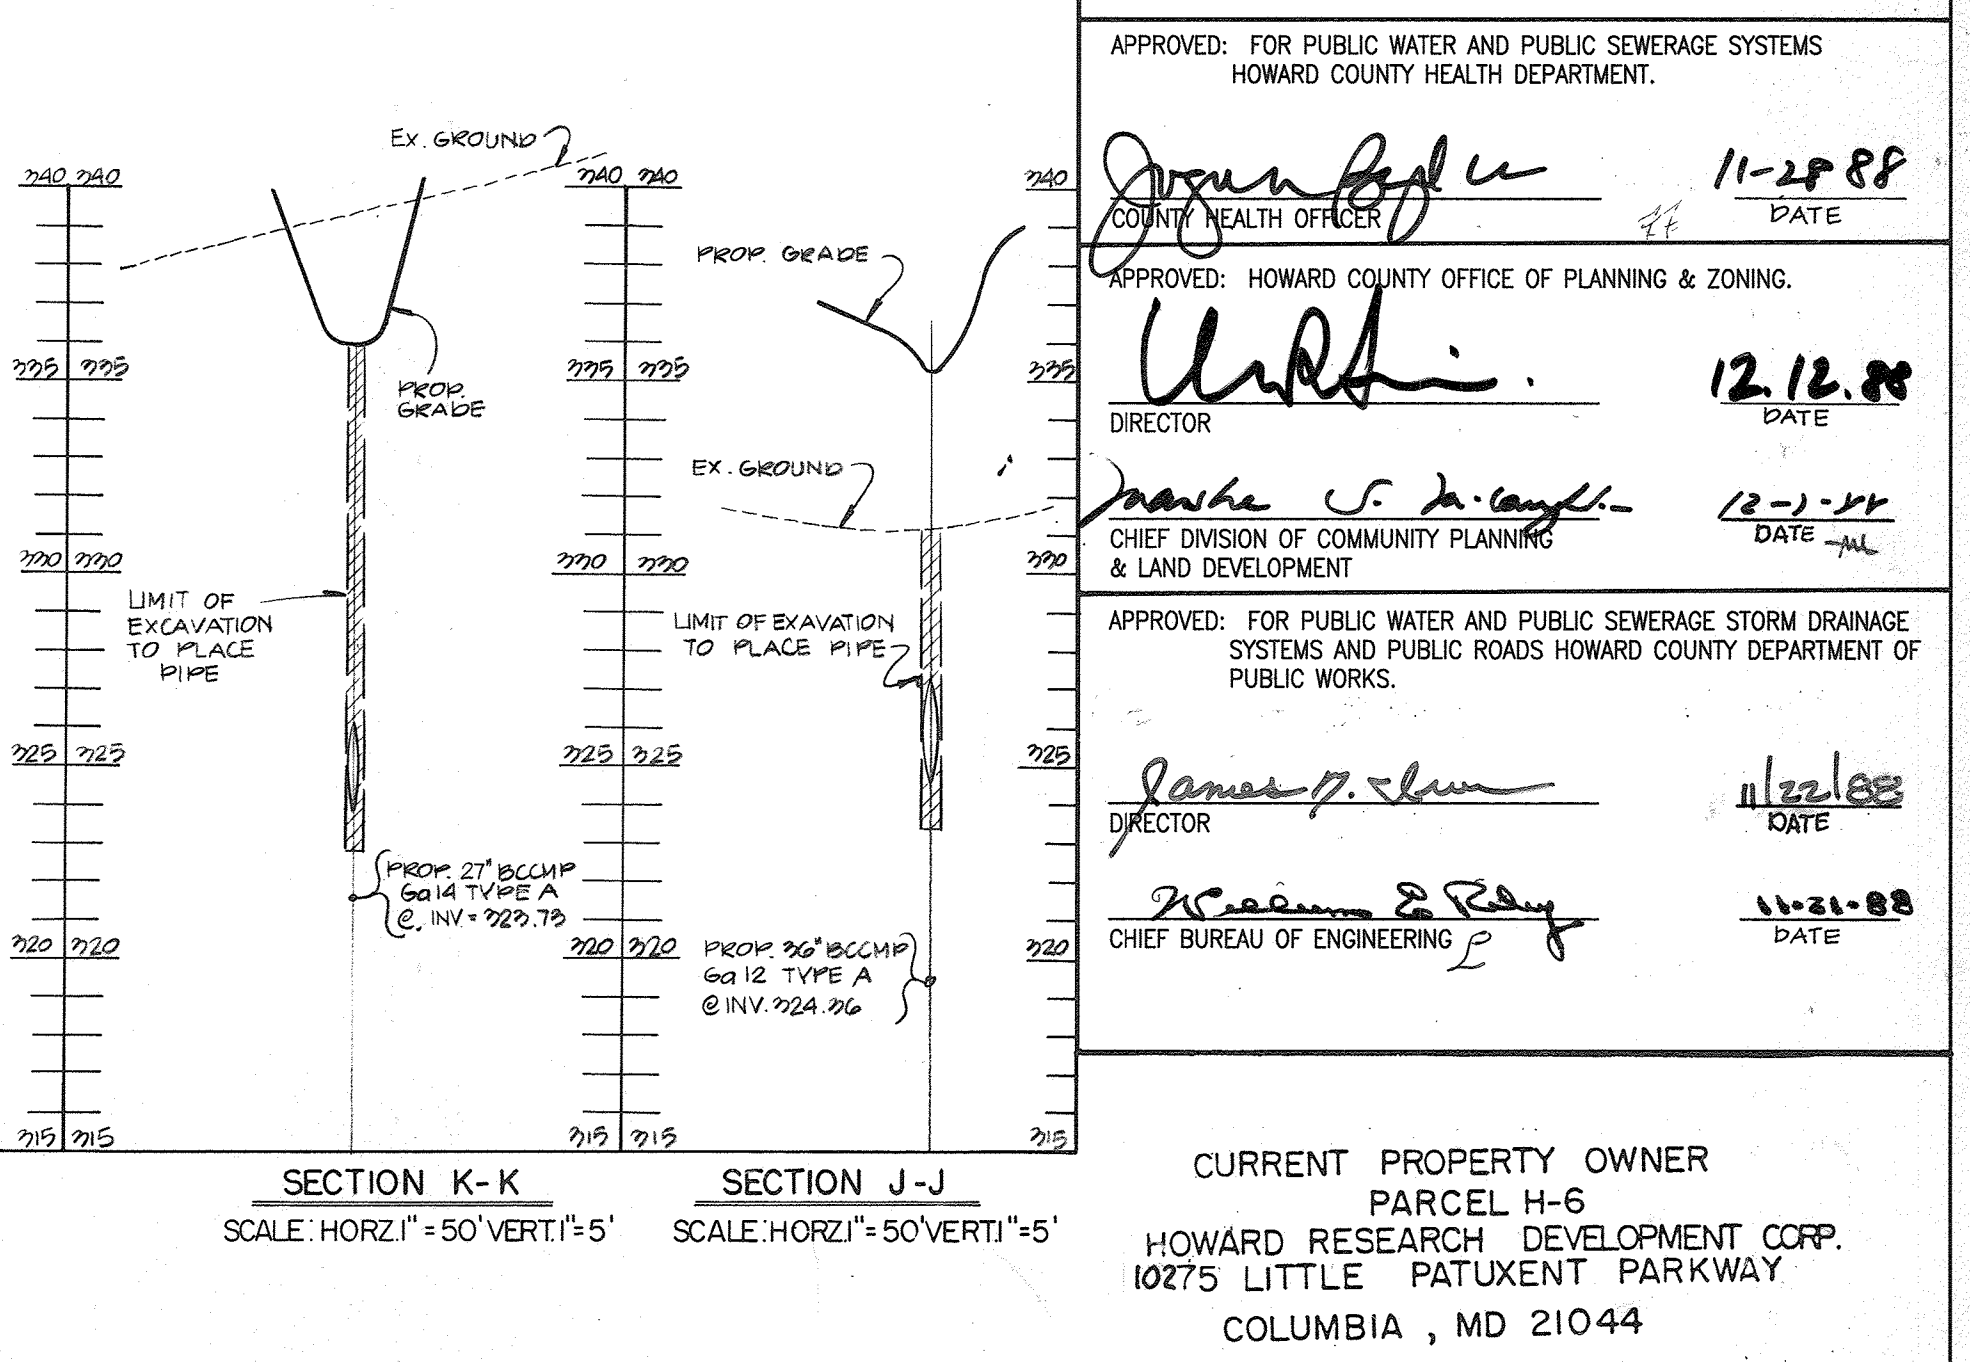 EX. GROUND
340 340
340 340
335 335
335 335
PROP.
GRADE
330 330
330 330
LIMIT OF
EXCAVATION
TO PLACE
PIPE
325 325
325 325
PROP. 27" BCCMP
Ga 14 TYPE A
@ INV = 323.73
320 320
320 320
315 315
315 315
SECTION K-K
SCALE: HORZ.1"=50' VERT.1"=5'
340
PROP. GRADE
335
EX. GROUND
330
LIMIT OF EXAVATION
TO PLACE PIPE
325
PROP. 36" BCCMP
Ga 12 TYPE A
@ INV. 324.36
320
315
SECTION J-J
SCALE: HORZ.1"=50' VERT.1"=5'
APPROVED: FOR PUBLIC WATER AND PUBLIC SEWERAGE SYSTEMS
HOWARD COUNTY HEALTH DEPARTMENT.
11-28 88
COUNTY HEALTH OFFICER
DATE
APPROVED: HOWARD COUNTY OFFICE OF PLANNING & ZONING.
12.12.88
DIRECTOR
DATE
CHIEF DIVISION OF COMMUNITY PLANNING
& LAND DEVELOPMENT
DATE
APPROVED: FOR PUBLIC WATER AND PUBLIC SEWERAGE STORM DRAINAGE
SYSTEMS AND PUBLIC ROADS HOWARD COUNTY DEPARTMENT OF
PUBLIC WORKS.
James 11/22/88
DIRECTOR
DATE
William E. Riley 11-21-88
CHIEF BUREAU OF ENGINEERING
DATE
CURRENT PROPERTY OWNER
PARCEL H-6
HOWARD RESEARCH DEVELOPMENT CORP.
10275 LITTLE PATUXENT PARKWAY
COLUMBIA , MD 21044